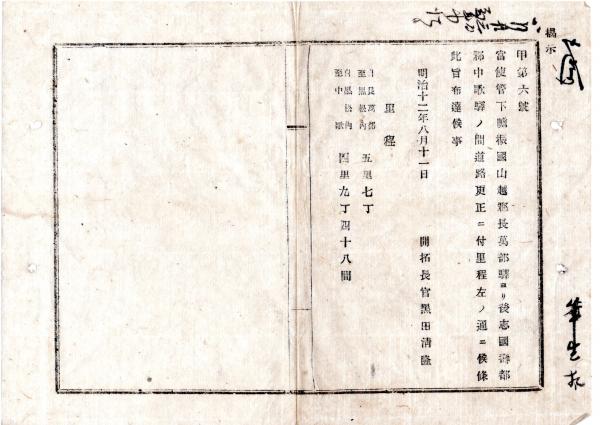 掲示
甲第六號
當使管下膽振國山越郡長萬部驛ヨリ後志國壽都
郡中歌驛ノ間道路更正ニ付里程左ノ通ニ候條
此旨布達候事
明治十二年八月十一日
開拓長官黑田清隆
里程
自長萬部
至黑松內
五里七丁
自黑松內
至中歌
四里九丁四十八間